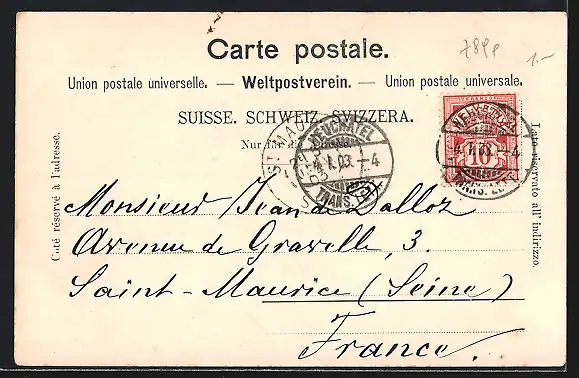 789p
1.-
Carte postale.
Union postale universelle. — Weltpostverein. — Unione postale universale.
SUISSE. SCHWEIZ. SVIZZERA.
Nur für die Adresse.
Côté réservé à l'adresse.
Lato riservato all' indirizzo.
FRANCO
10
NEUCHATEL
4.I.03.-4
TRANS. LET.
NEUCHATEL
-4.I.03.-4
TRANS. LET.
ST MAU
Monsieur Jean de Dalloz
Avenue de Gravelle, 3.
Saint-Maurice (Seine)
France.